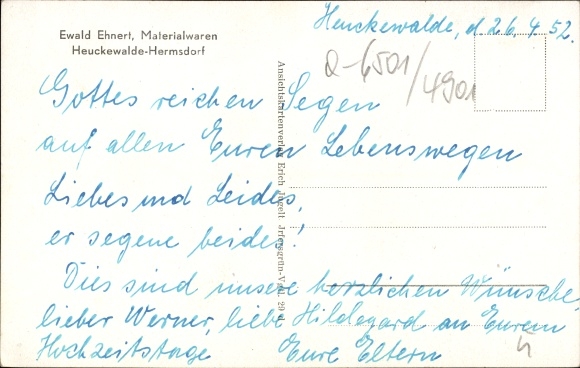 Ewald Ehnert, Materialwaren
Heuckewalde-Hermsdorf
Heuckewalde, d. 26. 4. 52.
Q-6501/4901
Gottes reichen Segen
auf allen Euren Lebenswegen
Liebes und Leides,
er segene beides!
Dies sind unsere herzlichen Wünsche,
lieber Werner, liebe Hildegard an Eurem
Hochzeitstage Eure Eltern
Ansichtskartenverlag Erich Jagelt